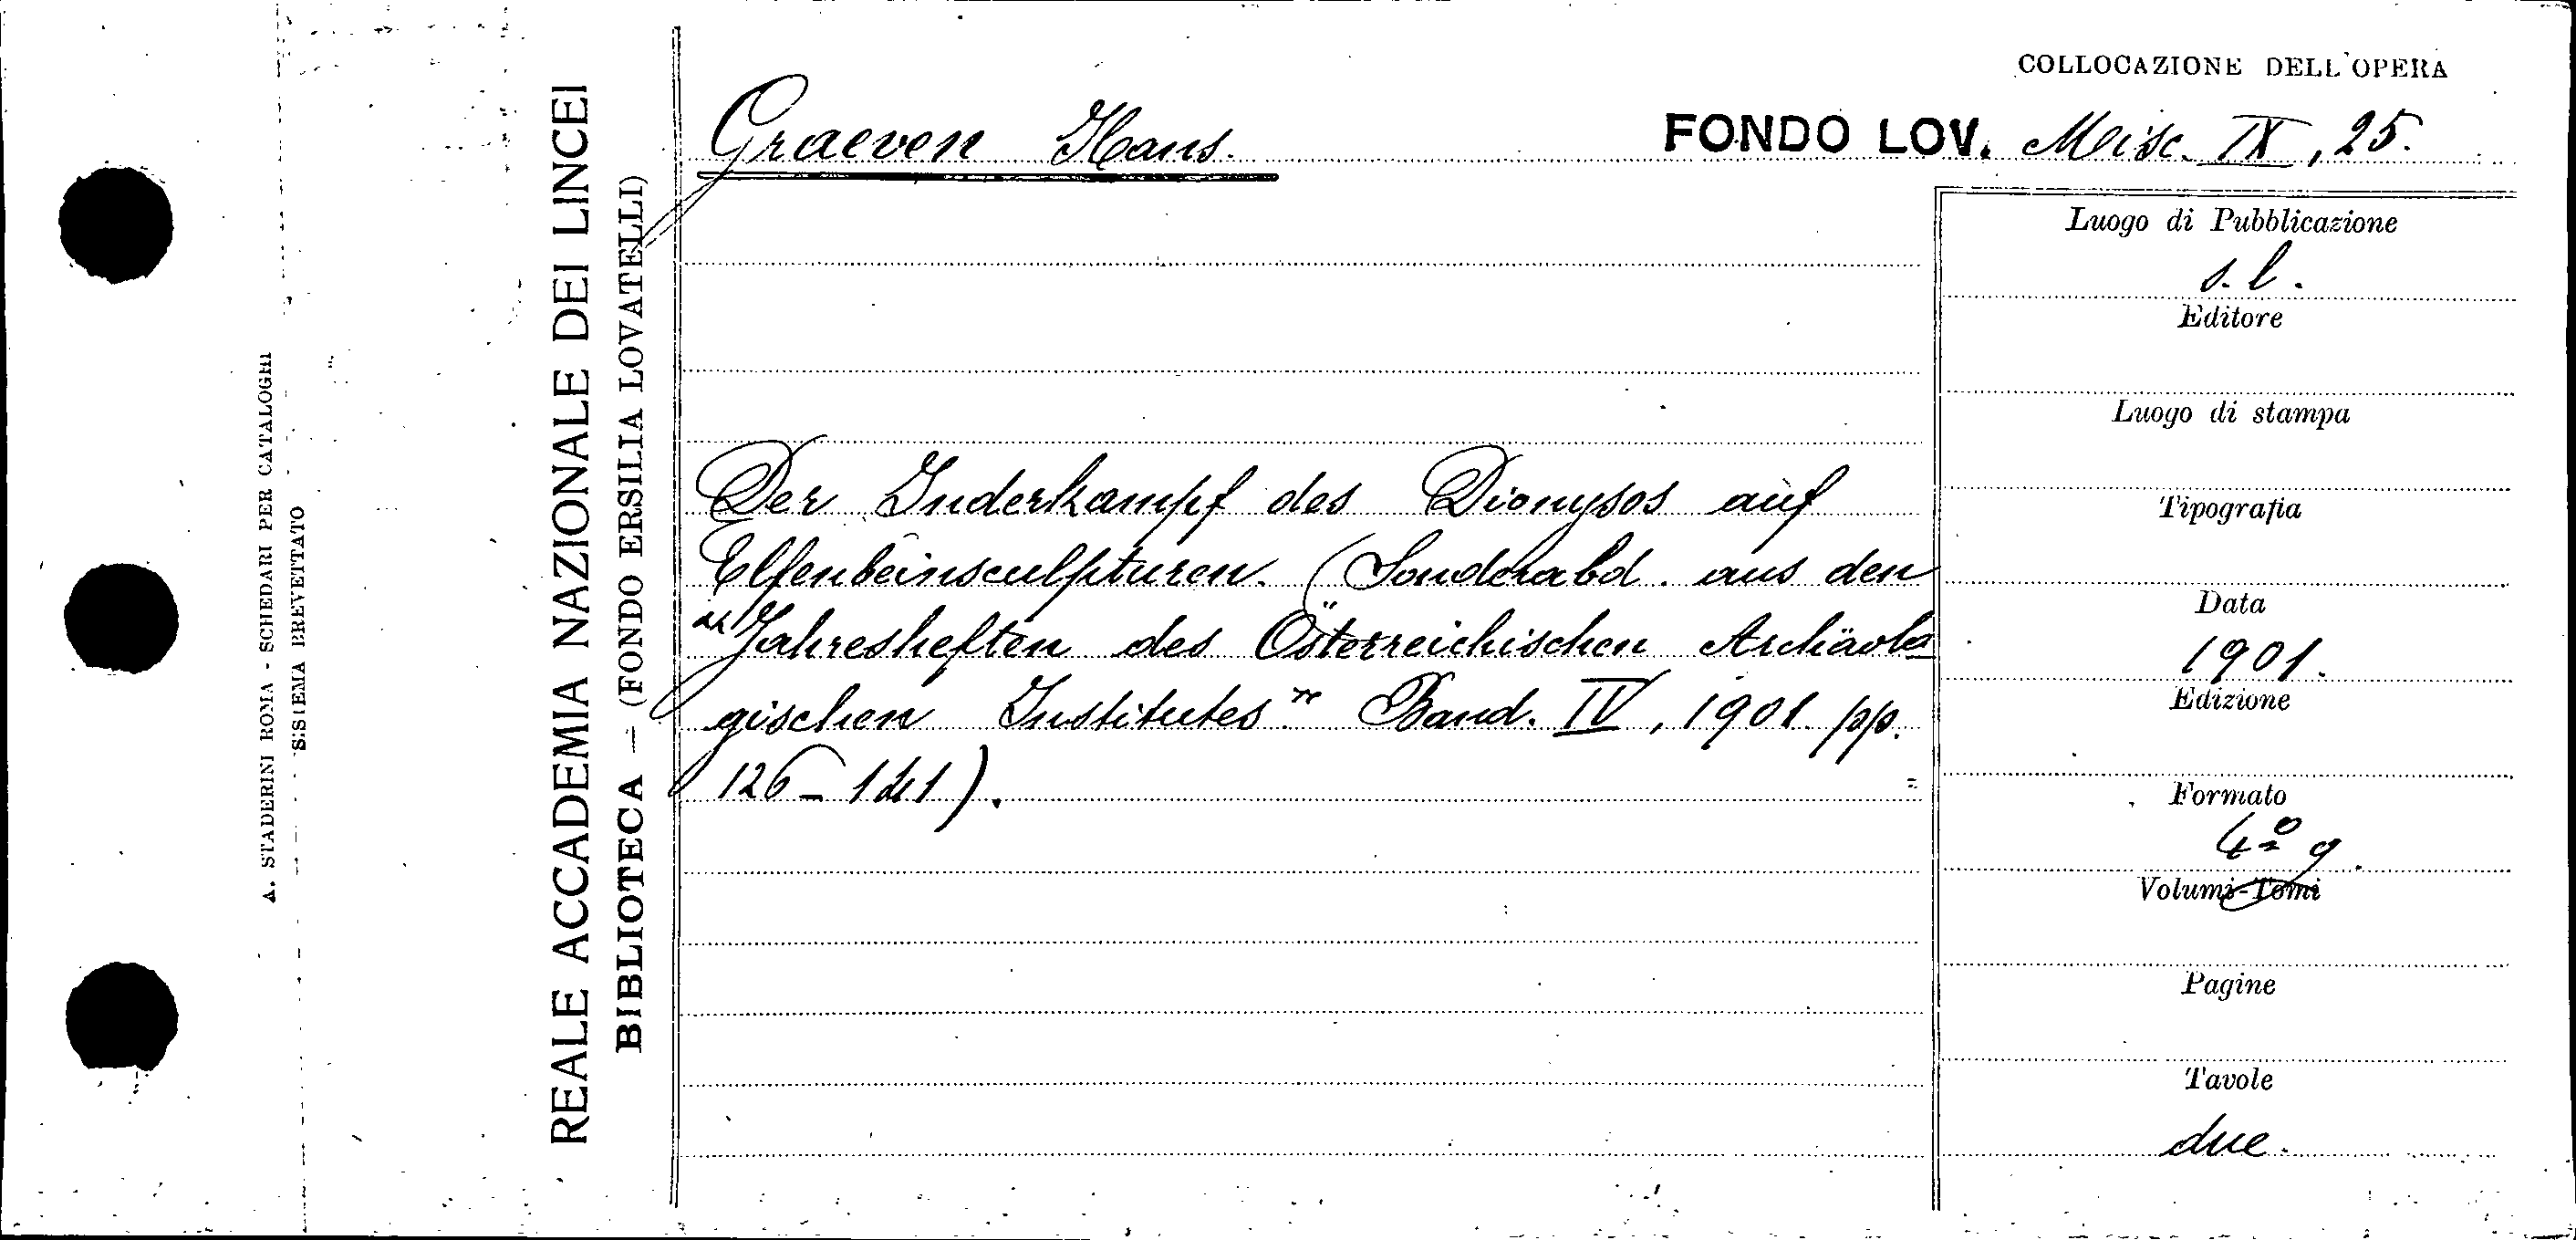 COLLOCAZIONE DELL'OPERA
Graeven Hans.
FONDO LOV. Misc. IX, 25.
Der Inderkampf des Dionysos auf
Elfenbeinsculpturen. (Sonderabd. aus den
"Jahresheften des Österreichischen Archäolo
gischen Institutes" Band. IV, 1901 pp.
126-141).
Luogo di Pubblicazione
s. l.
Editore
Luogo di stampa
Tipografia
Data
1901.
Edizione
Formato
4º g.
Volumi-Tomi
Pagine
Tavole
due.
REALE ACCADEMIA NAZIONALE DEI LINCEI
BIBLIOTECA — (FONDO ERSILIA LOVATELLI)
A. STADERINI ROMA - SCHEDARI PER CATALOGHI
SISTEMA BREVETTATO